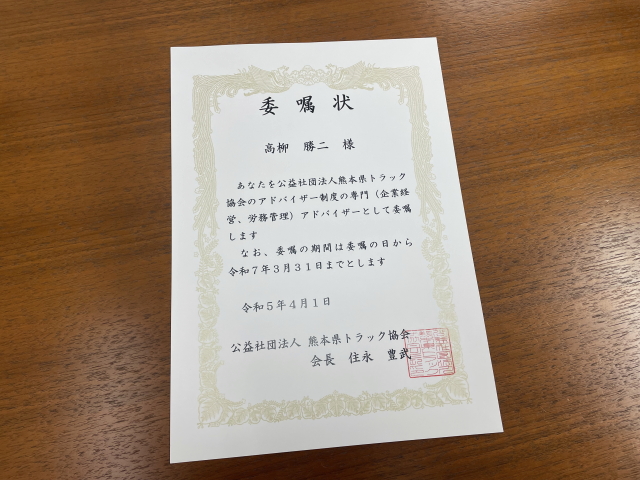 委嘱状
高柳　勝二　様
あなたを公益社団法人熊本県トラック
協会のアドバイザー制度の専門（企業経
営、労務管理）アドバイザーとして委嘱
します
なお、委嘱の期間は委嘱の日から
令和７年３月３１日までとします
令和５年４月１日
公益社団法人 熊本県トラック協会
会長　住永　豊武